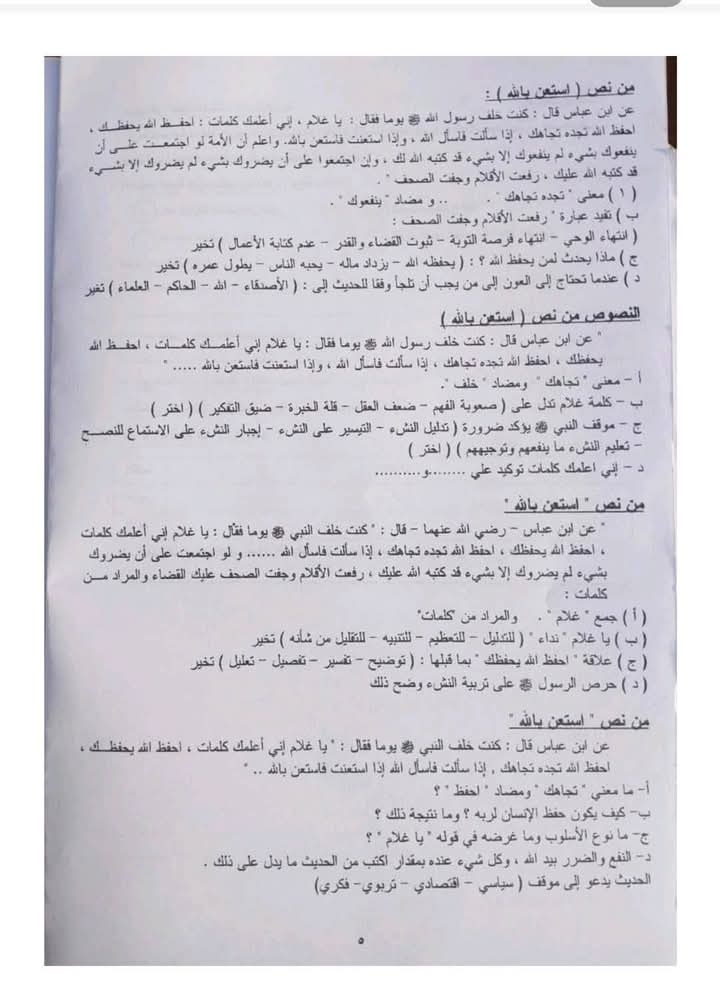 من نص ( استعن بالله ) :
عن ابن عباس قال : كنت خلف رسول الله ﷺ يوما فقال : يا غلام ، إني أعلمك كلمات : احفظ الله يحفظك ،
احفظ الله تجده تجاهك ، إذا سألت فاسأل الله ، وإذا استعنت فاستعن بالله. واعلم أن الأمة لو اجتمعت على أن
ينفعوك بشيء لم ينفعوك إلا بشيء قد كتبه الله لك ، وإن اجتمعوا على أن يضروك بشيء لم يضروك إلا بشيء
قد كتبه الله عليك ، رفعت الأقلام وجفت الصحف " .
( ١ ) معنى " تجده تجاهك " . .. و مضاد " ينفعوك " .
ب ) تفيد عبارة " رفعت الأقلام وجفت الصحف :
( انتهاء الوحي – انتهاء فرصة التوبة – ثبوت القضاء والقدر – عدم كتابة الأعمال ) تخير
ج ) ماذا يحدث لمن يحفظ الله ؟ : ( يحفظه الله – يزداد ماله – يحبه الناس – يطول عمره ) تخير
د ) عندما تحتاج إلى العون إلى من يجب أن تلجأ وفقا للحديث إلى : ( الأصدقاء – الله – الحاكم – العلماء ) تغير
النصوص من نص ( استعن بالله )
" عن ابن عباس قال : كنت خلف رسول الله ﷺ يوما فقال : يا غلام إني أعلمك كلمات ، احفظ الله
يحفظك ، احفظ الله تجده تجاهك ، إذا سألت فاسأل الله ، وإذا استعنت فاستعن بالله ..... "
أ – معنى " تجاهك " ومضاد " خلف ".
ب – كلمة غلام تدل على ( صعوبة الفهم – ضعف العقل – قلة الخبرة – ضيق التفكير ) ( اختر )
ج – موقف النبي ﷺ يؤكد ضرورة ( تدليل النشء – التيسير على النشء – إجبار النشء على الاستماع للنصح
– تعليم النشء ما ينفعهم وتوجيههم ) ( اختر )
د – إني اعلمك كلمات توكيد علي ........و..........
من نص " استعن بالله "
" عن ابن عباس – رضي الله عنهما – قال : " كنت خلف النبي ﷺ يوما فقال : يا غلام إني أعلمك كلمات
، احفظ الله يحفظك ، احفظ الله تجده تجاهك ، إذا سألت فاسأل الله ...... و لو اجتمعت على أن يضروك
بشيء لم يضروك إلا بشيء قد كتبه الله عليك ، رفعت الأقلام وجفت الصحف عليك القضاء والمراد من
كلمات :
( أ ) جمع " غلام " . والمراد من "كلمات"
( ب ) يا غلام " نداء " ( للتدليل – للتعظيم – للتنبيه – للتقليل من شأنه ) تخير
( ج ) علاقة " احفظ الله يحفظك " بما قبلها : ( توضيح – تفسير – تفصيل – تعليل ) تخير
( د ) حرص الرسول ﷺ على تربية النشء وضح ذلك
من نص " استعن بالله "
عن ابن عباس قال : كنت خلف النبي ﷺ يوما فقال : " يا غلام إني أعلمك كلمات ، احفظ الله يحفظك ،
احفظ الله تجده تجاهك , إذا سألت فاسأل الله إذا استعنت فاستعن بالله .. "
أ- ما معني " تجاهك " ومضاد " احفظ " ؟
ب- كيف يكون حفظ الإنسان لربه ؟ وما نتيجة ذلك ؟
ج- ما نوع الأسلوب وما غرضه في قوله " يا غلام " ؟
د- النفع والضرر بيد الله ، وكل شيء عنده بمقدار اكتب من الحديث ما يدل على ذلك .
الحديث يدعو إلى موقف ( سياسي – اقتصادي – تربوي- فكري)
٥